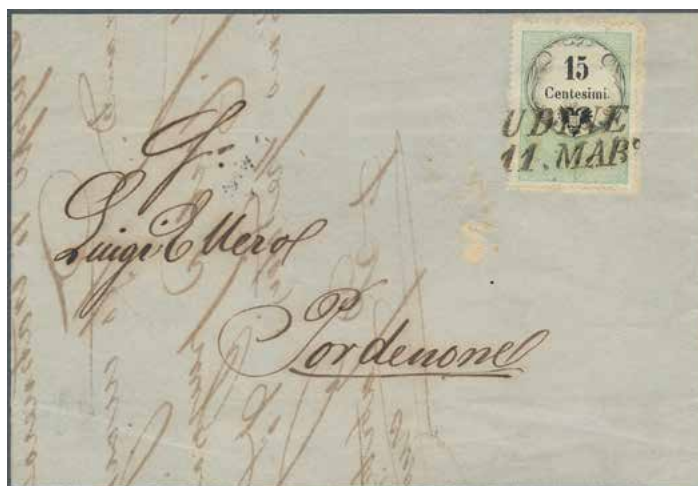 15
Centesimi.
UDINE
11. MARº
Luigi Ellero
Pordenone